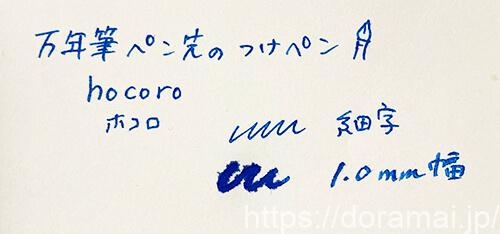 万年筆ペン先のつけペン
hocoro
ホコロ
細字
1.0mm幅
https://doramai.jp/